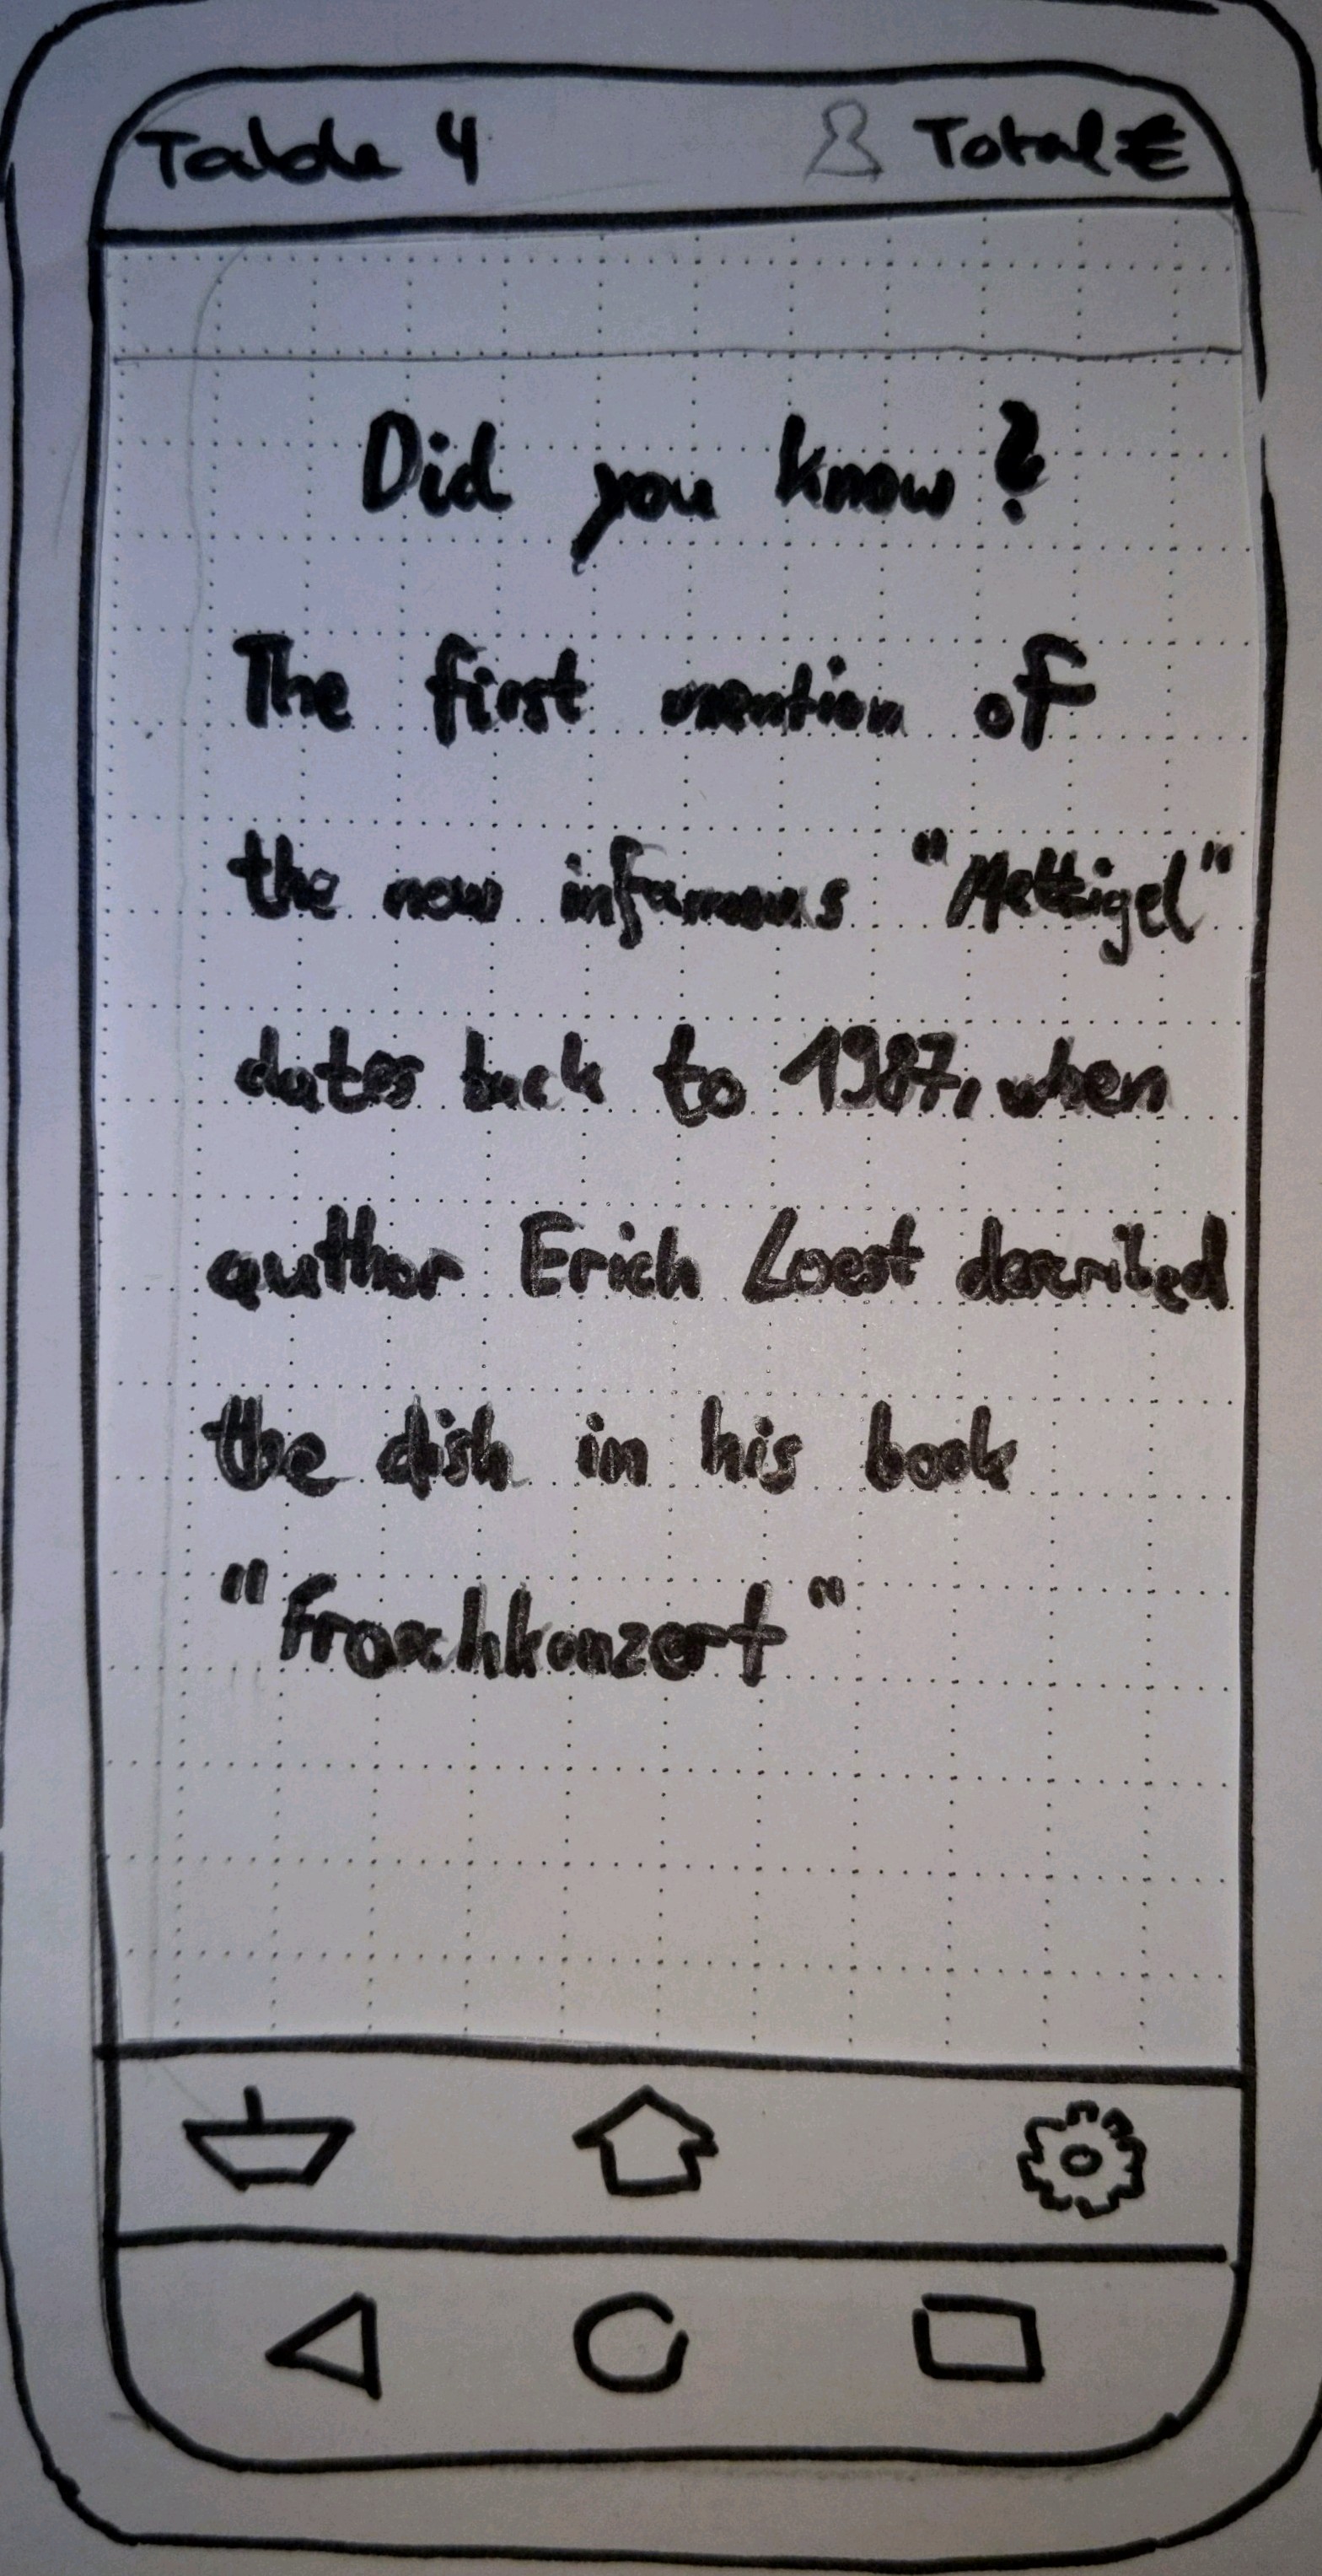 Table 4 Total €
Did you know?
The first mention of
the now infamous "Mettigel"
dates back to 1987, when
author Erich Loest described
the dish in his book
"Froschkonzert"